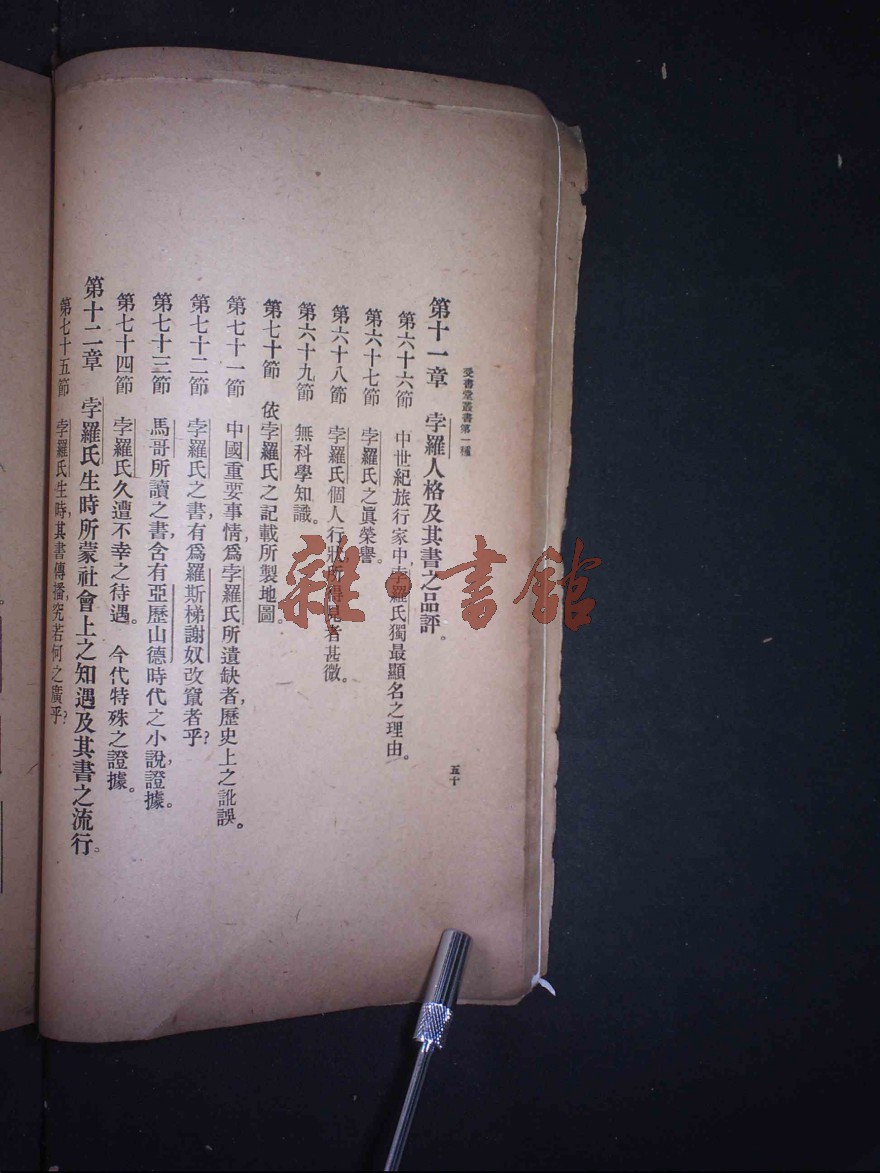 受書堂叢書第一種
五十
第十一章 孛羅人格及其書之品評。
第六十六節 中世紀旅行家中,孛羅氏獨最顯名之理由。
第六十七節 孛羅氏之眞榮譽。
第六十八節 孛羅氏個人行狀,所得見者甚微。
第六十九節 無科學知識。
第七十節 依孛羅氏之記載所製地圖。
第七十一節 中國重要事情,爲孛羅氏所遺缺者,歷史上之訛誤。
第七十二節 孛羅氏之書,有爲羅斯梯謝奴改竄者乎?
第七十三節 馬哥所讀之書,含有亞歷山德時代之小說,證據。
第七十四節 孛羅氏久遭不幸之待遇。 今代特殊之證據。
第十二章 孛羅氏生時所蒙社會上之知遇及其書之流行。
第七十五節 孛羅氏生時,其書傳播,究若何之廣乎?
雜·書館